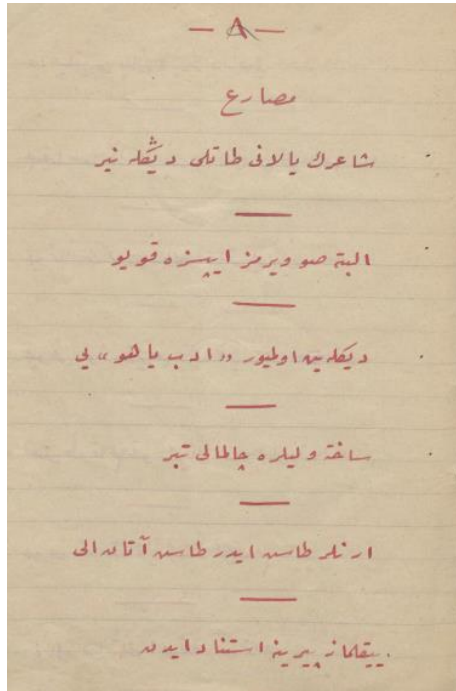 — ٨ —
مصارع
شاعرك يالانى طاتلى ديڭله نير
البته صو ويرمز ايپسزه قويو
ديكله ين اولميور «ادب ياهو» يى
ساخته وليلره چالمالى تبر
ارنلر طاس ايدر طاسه آتان الى
ييقلماز پيرينه استناد ايدن